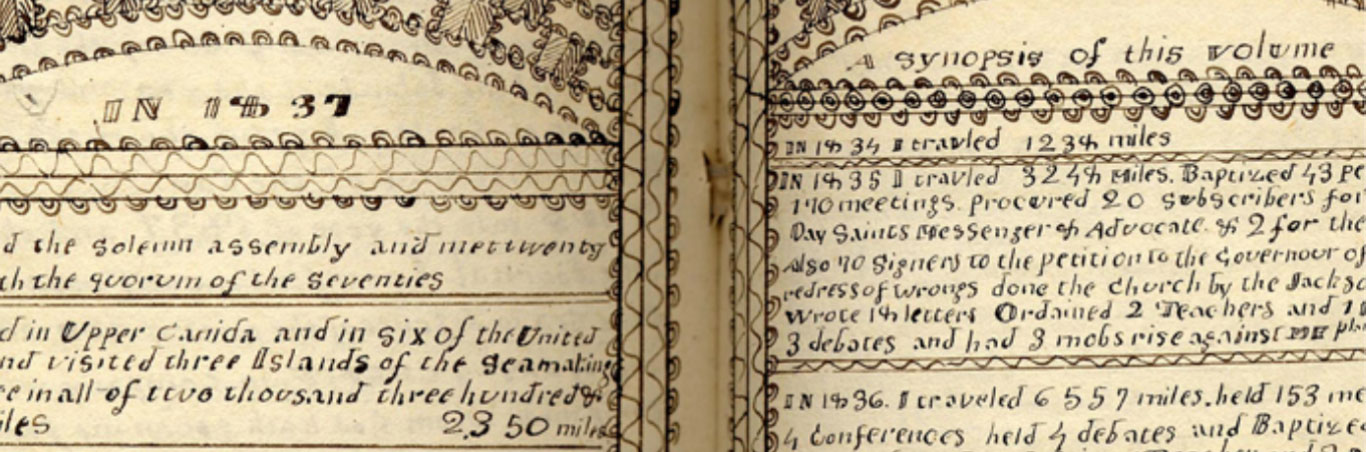 IN 1837
d the solemn assembly and met twenty
th the quorum of the Seventies
d in Upper Canida and in six of the United
nd visited three Islands of the sea making
re in all of two thousand three hundred &
iles 2350 miles
A synopsis of this volume
IN 1834 I travled 1238 miles
IN 1835 I travled 3248 miles. Baptized 43 pe
170 meetings. procured 20 subscribers for
Day Saints Messenger & Advocate. & 2 for the
Also 70 Signers to the petition to the Governour of
redress of wrongs done the church by the Jackso
wrote 18 letters Ordained 2 Teachers and 1
3 debates and had 3 mobs rise against me pla
IN 1836. I traveled 6557 miles. held 153 me
4 Conferences held 4 debates and Baptize